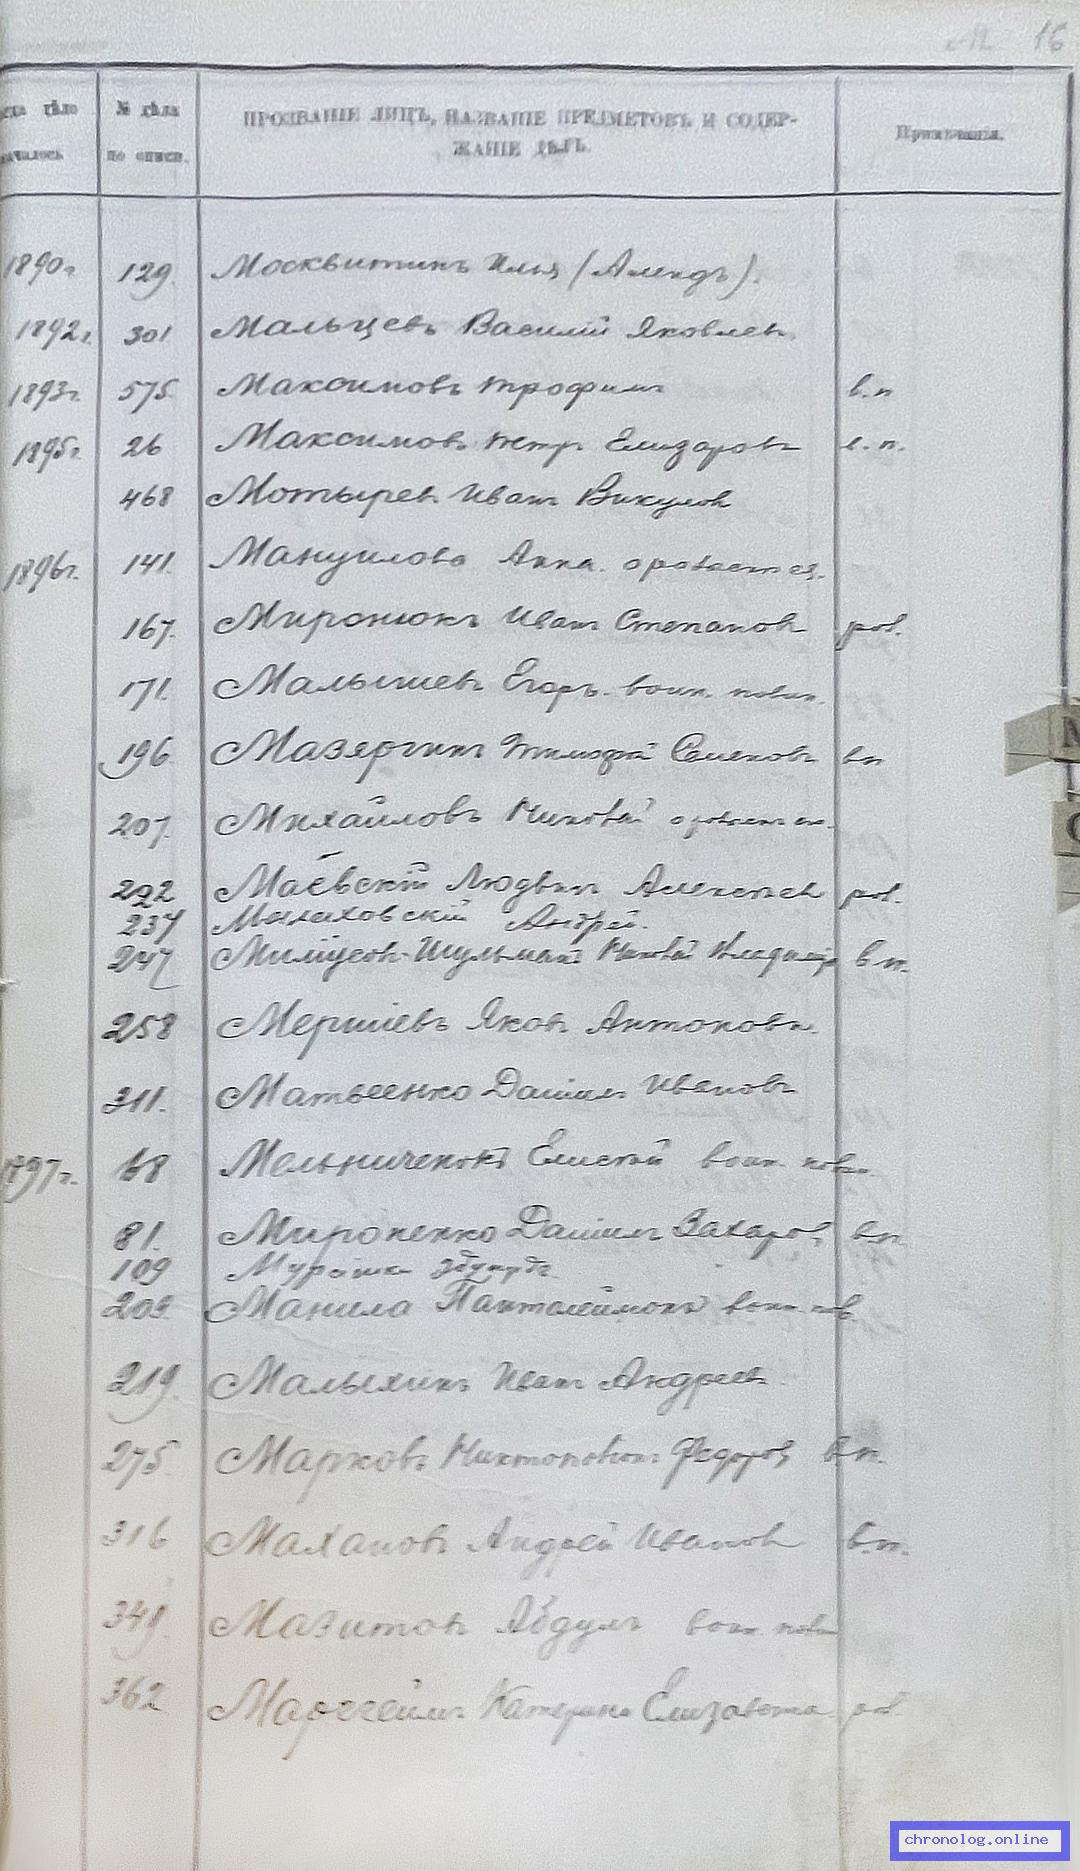 16
№ дѣла по описи.
ПРОЗВАНІЕ ЛИЦЪ, НАЗВАНІЕ ПРЕДМЕТОВЪ И СОДЕР-
ЖАНІЕ ДѢЛЪ.
Примѣчанія.
1890 г. 129. Москвитинъ Илья (Александъ).
1892 г. 301 Мальцевъ Василій Яковлев.
1893 г. 575 Максимовъ Трофимъ в. п
1895 г. 26 Максимовъ Петръ Елизаровъ в. п.
468 Мотыревъ Иванъ Викулов
1896 г. 141. Мануилова Анна.
167. Миронюкъ Иванъ Степановъ ров.
171. Малышевъ Егоръ воин. повин.
196 Мазяргинъ Тимофей Семеновъ вп
207. Михайловъ Николай
222 Маёвскій Людвигъ Алексѣев ров.
237 Малаховскій Андрей.
247 Шульманъ Николай Владимір в п.
258 Мершіевъ Яковъ Антоновъ.
311. Матвеенко Даніилъ Ивановъ
1897 г. 68 Мельниченокъ Елисей воин. повин.
81. Мироненко Даніилъ Захаров вп.
109 Мурашко Эдуардъ.
203. Манила Панталеймонъ воин. пов.
219. Малыхинъ Иванъ Андреев.
275. Марковъ Федоров в. п.
316 Махановъ Андрей Иванов в. п.
349. Мазитовъ Абдулъ воин. повин
362 Катерина Елизавета ров.
chronolog.online